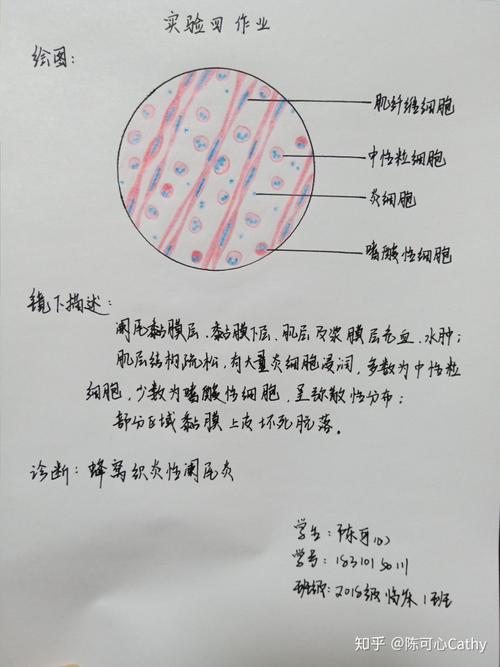 实验四 作业
绘图：
肌纤维细胞
中性粒细胞
炎细胞
嗜酸性细胞
镜下描述：
阑尾黏膜层、黏膜下层、肌层及浆膜层充血、水肿；
肌层结构疏松，有大量炎细胞浸润，多数为中性粒
细胞，少数为嗜酸性细胞，呈弥散性分布；
部分区域黏膜上皮坏死脱落。
诊断：蜂窝织炎性阑尾炎
学生：陈可心
学号：
班级：2018级临床1班
知乎 @陈可心Cathy